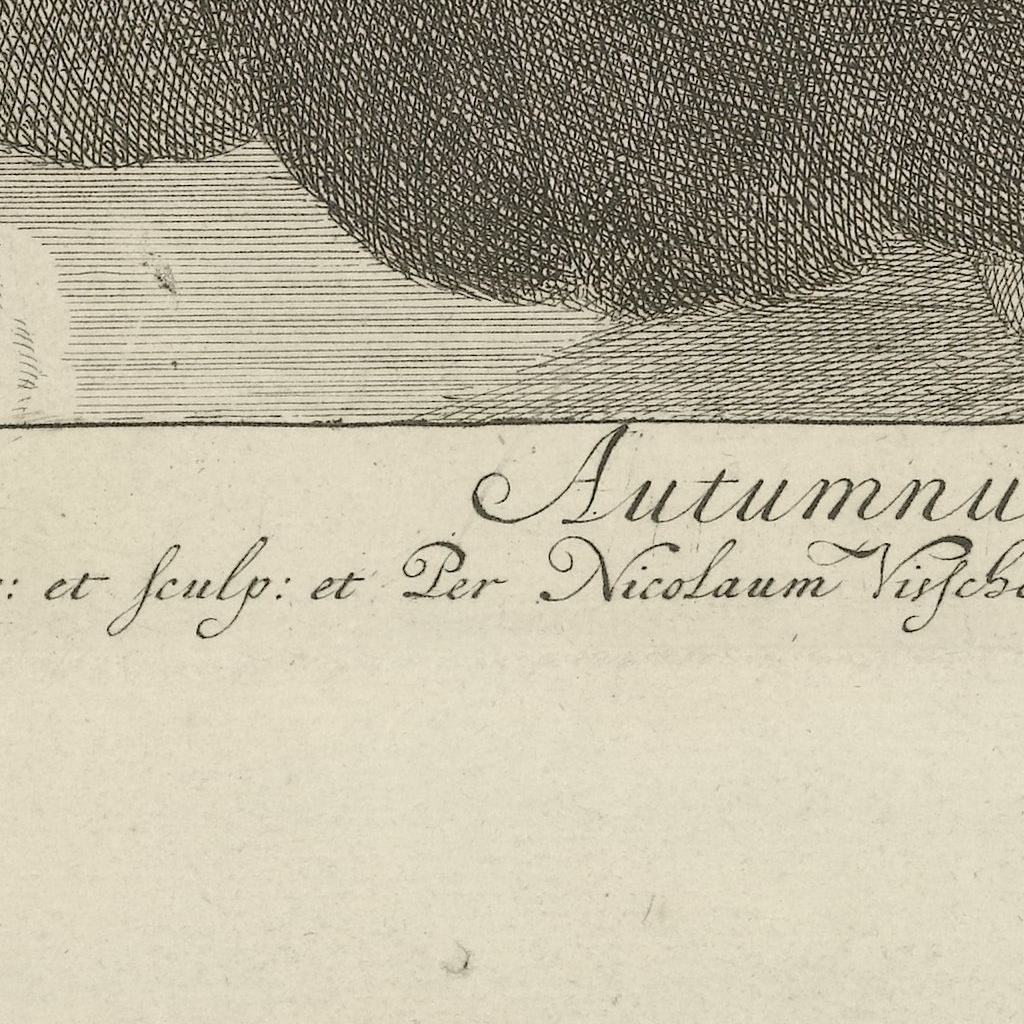 Autumnu
: et sculp: et Per Nicolaum Vissche